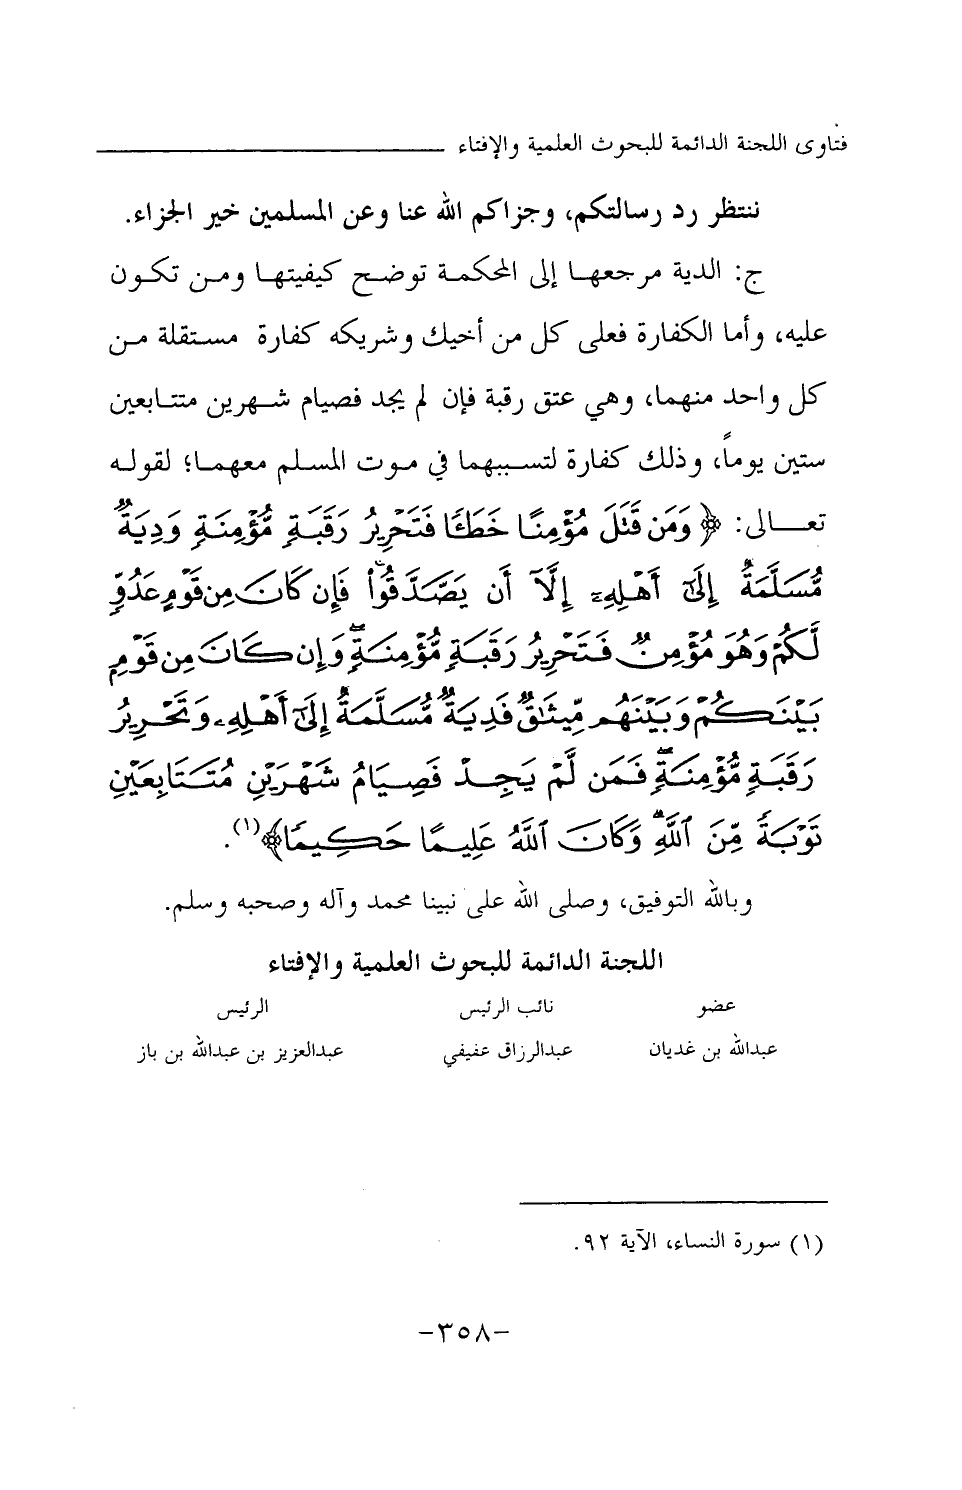 فتاوى اللجنة الدائمة للبحوث العلمية والإفتاء
ننتظر رد رسالتكم، وجزاكم الله عنا وعن المسلمين خير الجزاء.
ج: الدية مرجعها إلى المحكمة توضح كيفيتها ومن تكون
عليه، وأما الكفارة فعلى كل من أخيك وشريكه كفارة مستقلة من
كل واحد منهما، وهي عتق رقبة فإن لم يجد فصيام شهرين متتابعين
ستين يوماً، وذلك كفارة لتسببهما في موت المسلم معهما؛ لقوله
تعالى: ﴿وَمَن قَتَلَ مُؤْمِنًا خَطَـًٔا فَتَحْرِيرُ رَقَبَةٍ مُّؤْمِنَةٍ وَدِيَةٌ
مُّسَلَّمَةٌ إِلَىٰٓ أَهْلِهِۦٓ إِلَّآ أَن يَصَّدَّقُوا۟ ۚ فَإِن كَانَ مِن قَوْمٍ عَدُوٍّ
لَّكُمْ وَهُوَ مُؤْمِنٌ فَتَحْرِيرُ رَقَبَةٍ مُّؤْمِنَةٍ ۖ وَإِن كَانَ مِن قَوْمٍۭ
بَيْنَكُمْ وَبَيْنَهُم مِّيثَـٰقٌ فَدِيَةٌ مُّسَلَّمَةٌ إِلَىٰٓ أَهْلِهِۦ وَتَحْرِيرُ
رَقَبَةٍ مُّؤْمِنَةٍ ۖ فَمَن لَّمْ يَجِدْ فَصِيَامُ شَهْرَيْنِ مُتَتَابِعَيْنِ
تَوْبَةً مِّنَ ٱللَّهِ ۗ وَكَانَ ٱللَّهُ عَلِيمًا حَكِيمًا﴾(١).
وبالله التوفيق، وصلى الله على نبينا محمد وآله وصحبه وسلم.
اللجنة الدائمة للبحوث العلمية والإفتاء
عضو نائب الرئيس الرئيس
عبدالله بن غديان عبدالرزاق عفيفي عبدالعزيز بن عبدالله بن باز
(١) سورة النساء، الآية ٩٢.
-٣٥٨-